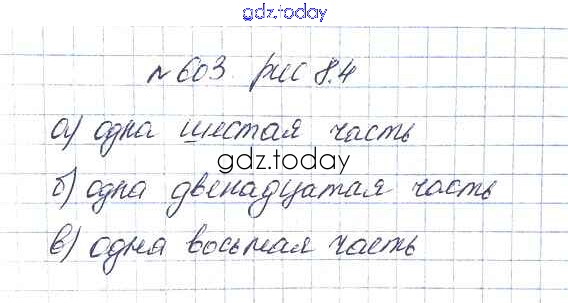 gdz.today
№603. рис 8.4
а) одна шестая часть
gdz.today
б) одна двенадцатая часть
в) одна восьмая часть